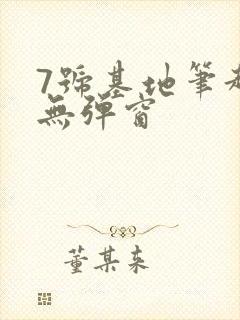 7號基地筆趣
無彈窗
董某某